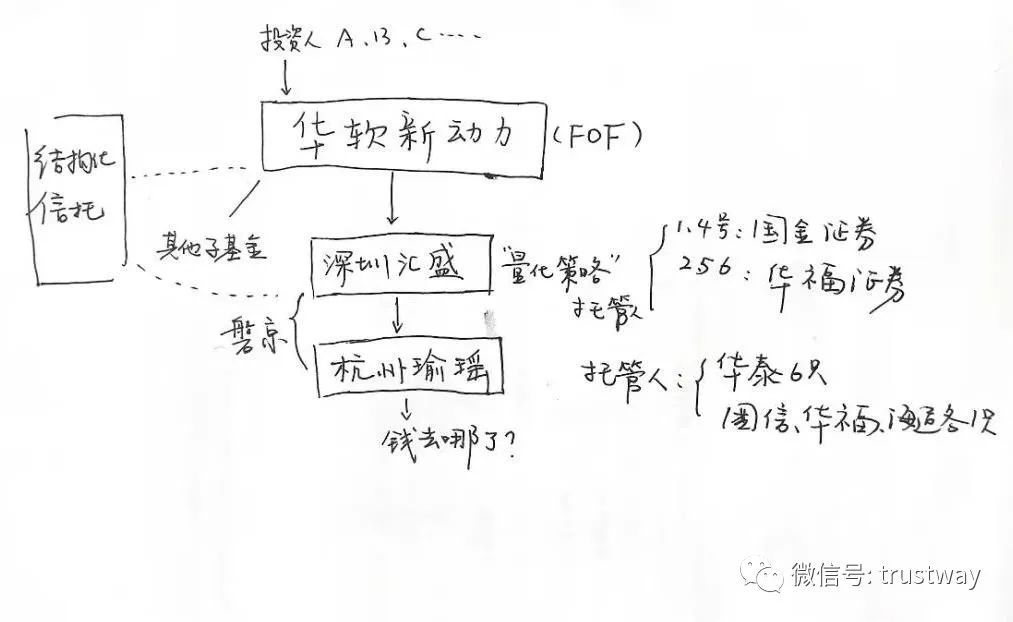 投资人 A、B、C……
华软新动力 (FOF)
结构化
信托
其他子基金
深圳汇盛
"量化策略"
托管人
1.4号：国金证券
256：华福证券
磐京
杭州瑜瑶
托管人：
华泰6只
国信、华福、海通各1只
钱去哪了？
微信号: trustway